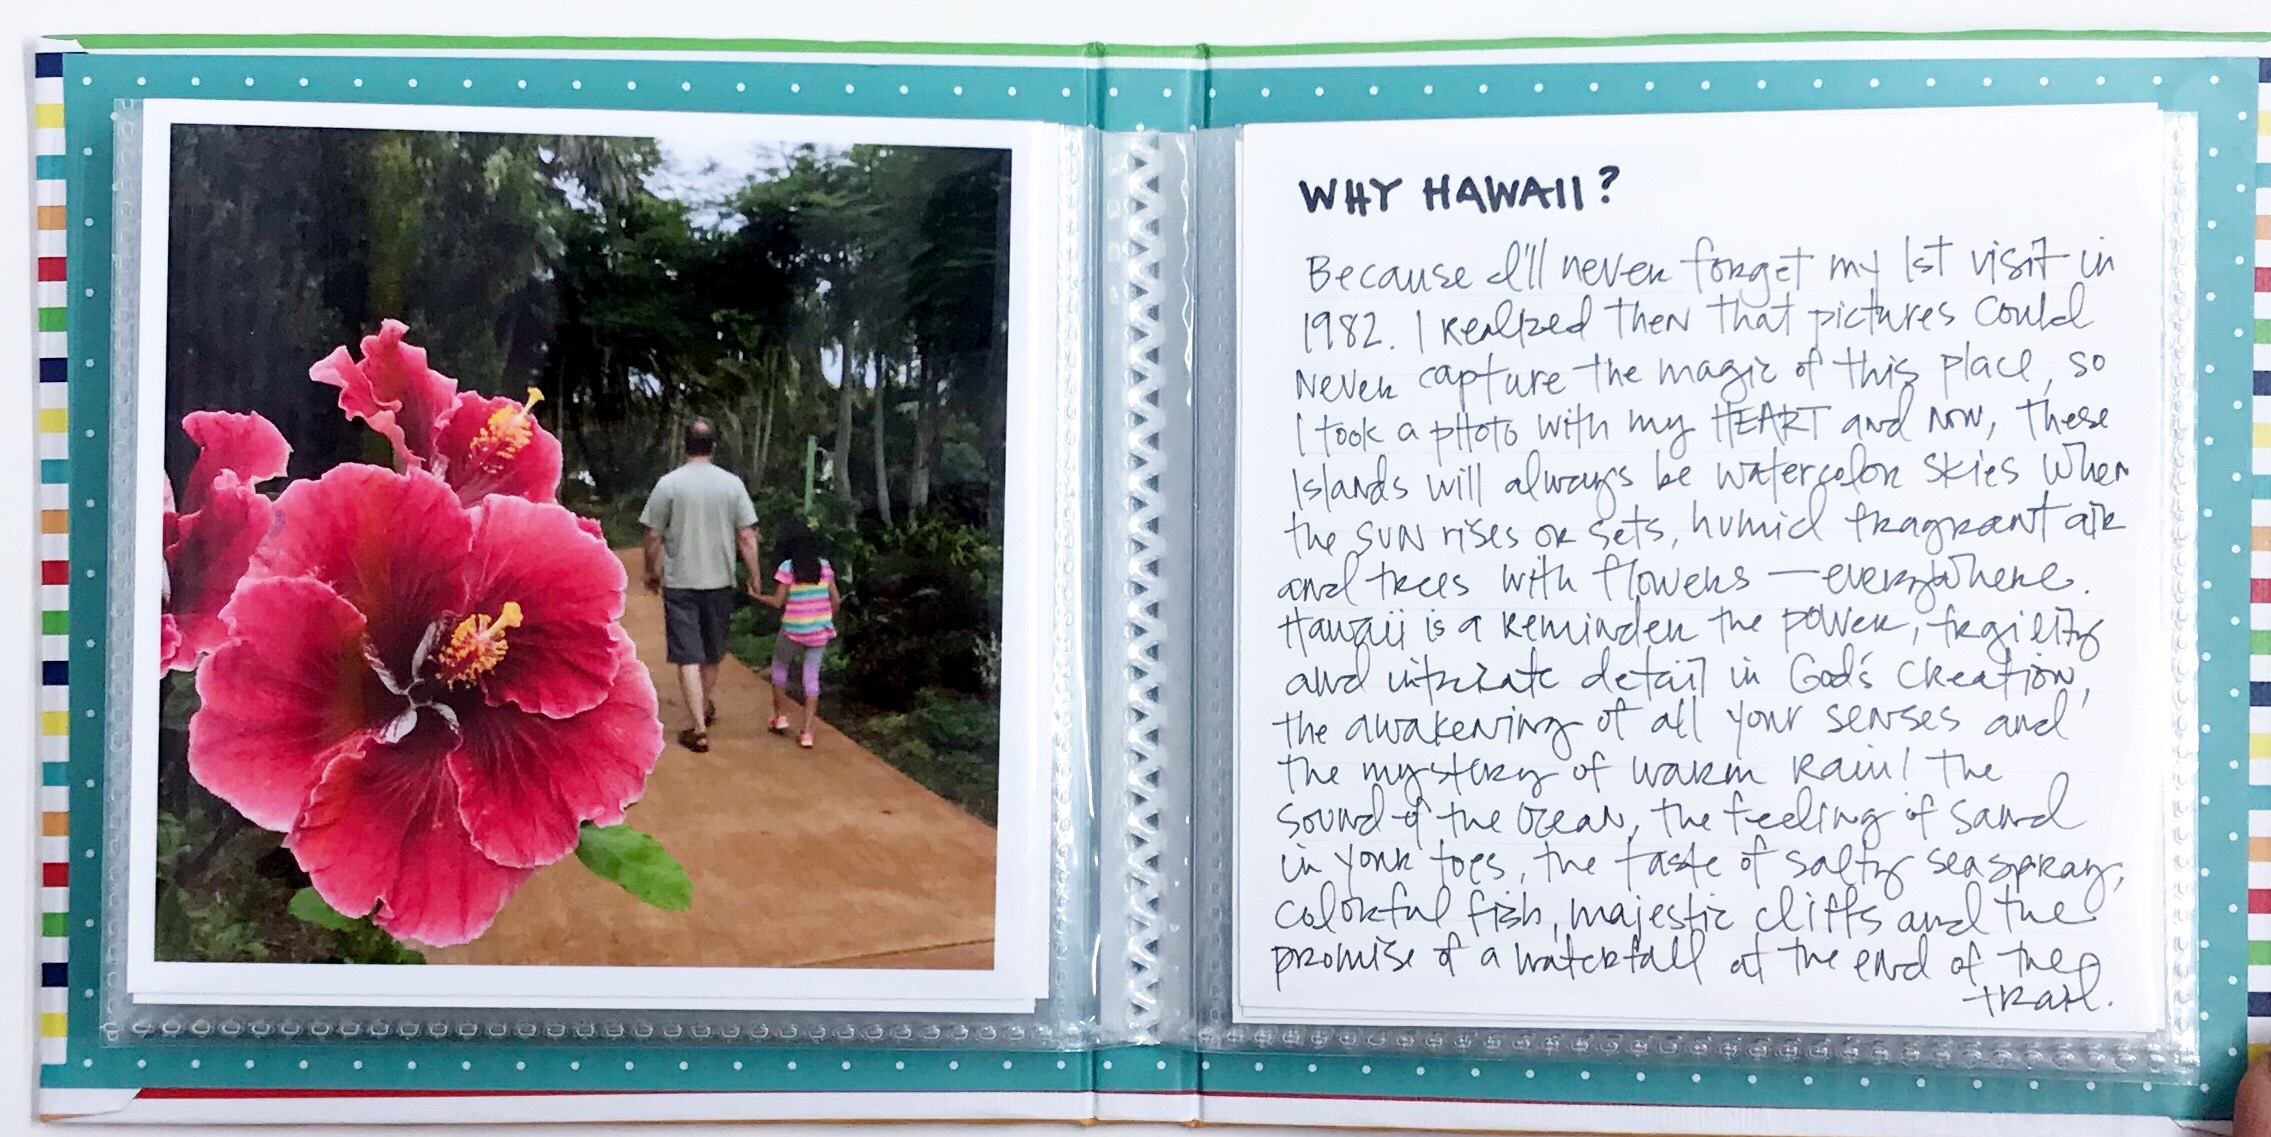 WHY HAWAII?
Because I'll never forget my 1st visit in
1982. I realized then that pictures could
never capture the magic of this place, so
I took a photo with my HEART and now, these
Islands will always be watercolor skies when
the sun rises or sets, humid fragrant air
and trees with flowers — everywhere.
Hawaii is a reminder the power, fragility
and intricate detail in God's creation,
the awakening of all your senses and
the mystery of warm rain! The
sound of the ocean, the feeling of sand
in your toes, the taste of salty seaspray,
colorful fish, majestic cliffs and the
promise of a waterfall at the end of the
trail.